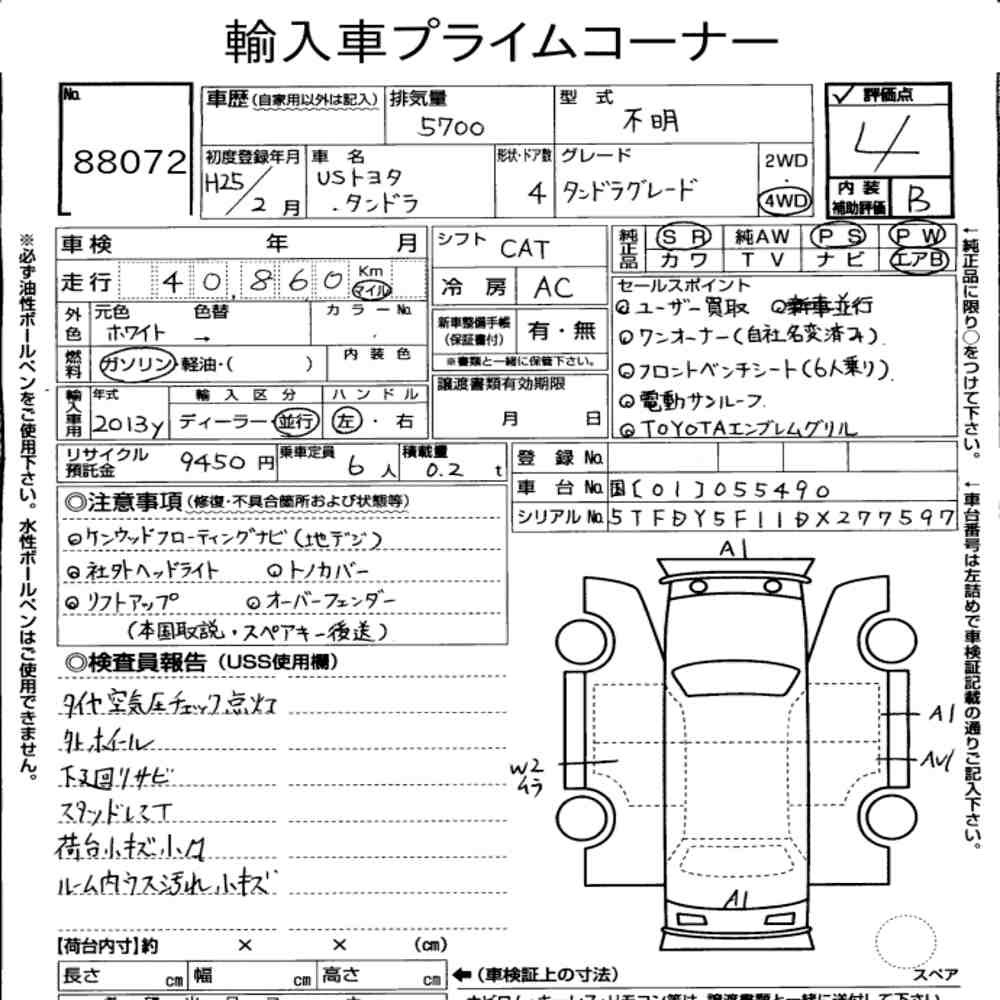 輸入車プライムコーナー
No.
88072
車歴(自家用以外は記入)
排気量
5700
型 式
不明
評価点
4
初度登録年月
H25/2月
車 名
USトヨタ
.タンドラ
形状・ドア数
4
グレード
タンドラグレード
2WD
・
4WD
内装
補助評価
B
車検 年 月
走行 40,860 Km
マイル
シフト CAT
冷 房 AC
純正品
SR 純AW PS PW
カワ TV ナビ エアB
外色
元色 色替 カラーNo.
ホワイト →
燃料
ガソリン・軽油・( )
内装色
新車整備手帳
(保証書付)
有・無
※書類と一緒に保管下さい。
譲渡書類有効期限
月 日
セールスポイント
◎ユーザー買取 ◎新車並行
◎ワンオーナー(自社名変済み)
◎フロントベンチシート(6人乗り)
◎電動サンルーフ
◎TOYOTAエンブレムグリル
輸入車用
年式
2013y
輸入区分
ディーラー・並行
ハンドル
左・右
リサイクル
預託金
9450円
乗車定員
6人
積載量
0.2 t
登録No.
車台No. 国[01]055490
シリアルNo. 5TFDY5F11DX277597
◎注意事項(修復・不具合箇所および状態等)
◎ケンウッドフローティングナビ(地デジ)
◎社外ヘッドライト ◎トノカバー
◎リフトアップ ◎オーバーフェンダー
(本国取説・スペアキー後送)
◎検査員報告(USS使用欄)
タイヤ空気圧チェック点灯
外ホイール
下廻リサビ
スタッドレスT
荷台小キズ小凹
ルーム内ウス汚れ小キズ
A1
A1
W2
ムラ
A1
【荷台内寸】約 × × (cm)
長さ cm 幅 cm 高さ cm
←(車検証上の寸法)
スペア
※必ず油性ボールペンをご使用下さい。水性ボールペンはご使用できません。
←純正品に限り○をつけて下さい。
←車台番号は左詰めで車検証記載の通りご記入下さい。